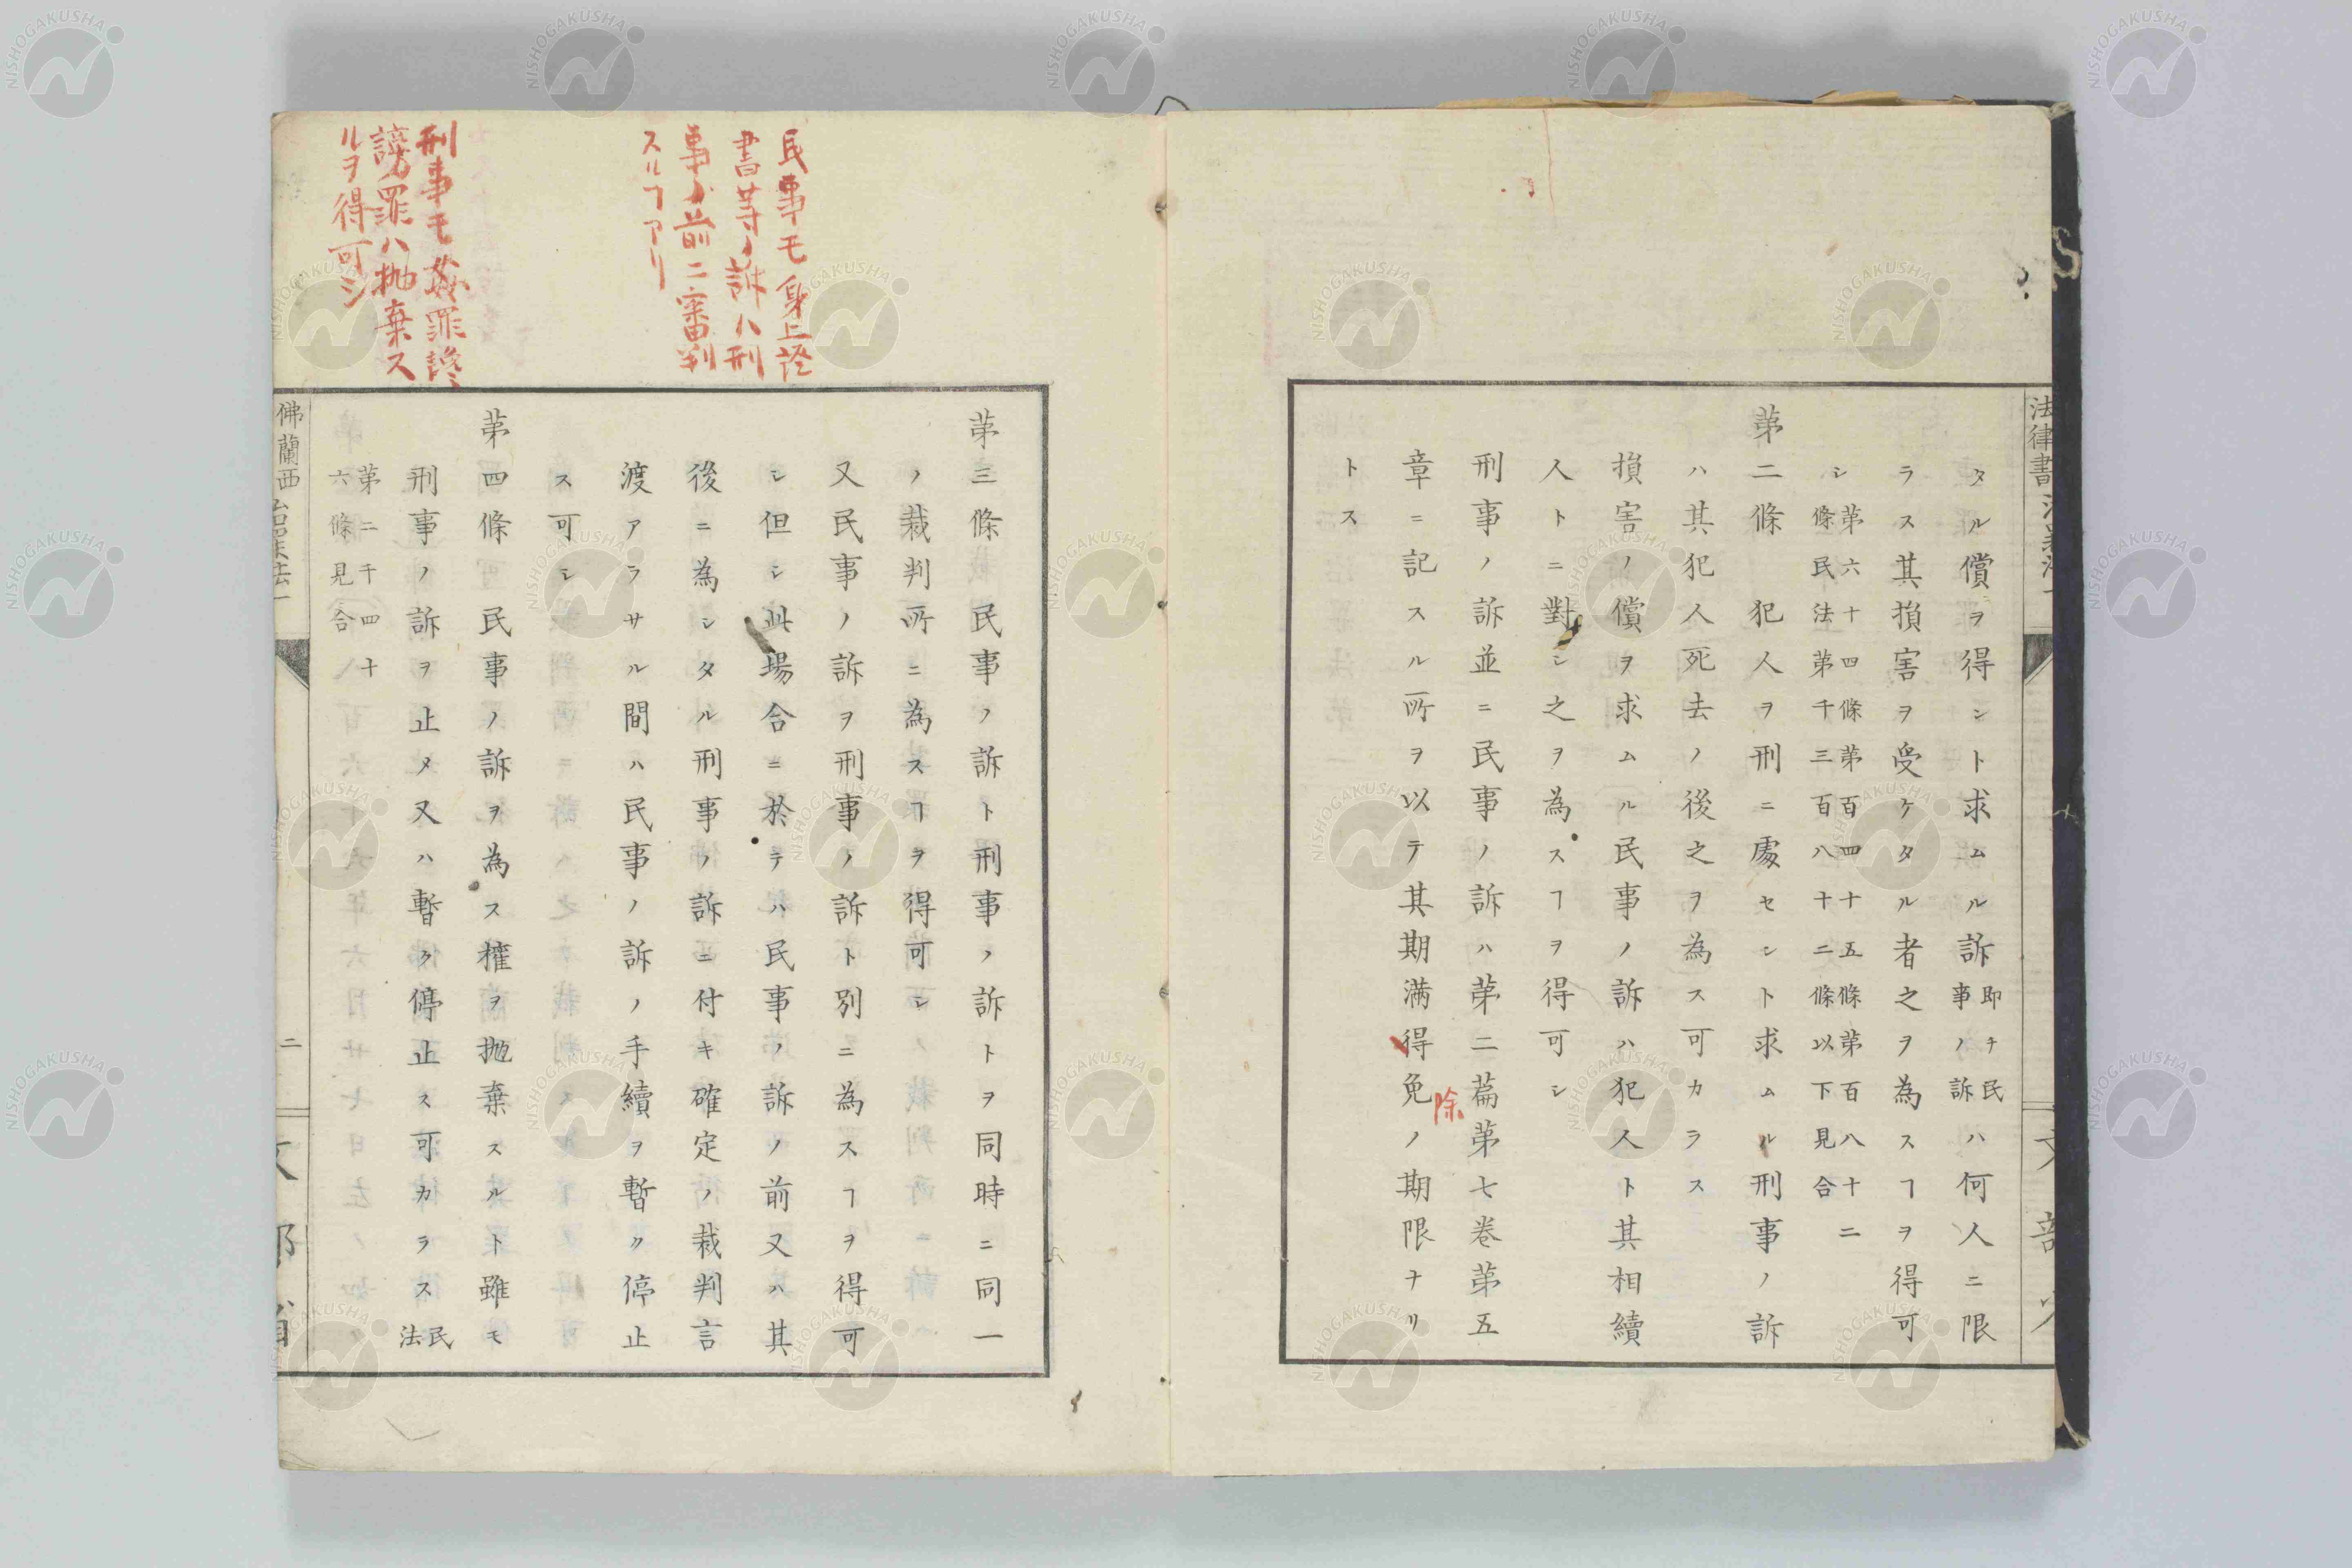 タル償ヲ得ント求ムル訴即チ民事ノ訴ハ何人ニ限
ラス其損害ヲ受ケタル者之ヲ為スヿヲ得可
シ第六十四條第百四十五條第百八十二
條民法第千三百八十二條以下見合
第二條 犯人ヲ刑ニ處セシト求ムル刑事ノ訴
ハ其犯人死去ノ後之ヲ為ス可カラス
損害ノ償ヲ求ムル民事ノ訴ハ犯人ト其相續
人トニ對シ之ヲ為スヿヲ得可シ
刑事ノ訴並ニ民事ノ訴ハ第二篇第七巻第五
章ニ記スル所ヲ以テ其期満得免ノ期限ナリ
除
トス
民事モ身上證
書等ノ訴ハ刑
事ノ前ニ審判
スルヿアリ
刑事モ姦罪讒
謗罪ハ抛棄ス
ルヲ得可シ
第三條 民事ノ訴ト刑事ノ訴トヲ同時ニ同一
ノ裁判所ニ為スヿヲ得可シ
又民事ノ訴ヲ刑事ノ訴ト別ニ為スヿヲ得可
シ但シ此場合ニ於テハ民事ノ訴ノ前又ハ其
後ニ為シタル刑事ノ訴ニ付キ確定ノ裁判言
渡アラサル間ハ民事ノ訴ノ手續ヲ暫ク停止
ス可シ
第四條 民事ノ訴ヲ為ス權ヲ抛棄スルト雖モ
刑事ノ訴ヲ止メ又ハ暫ク停止ス可カラス民法
第二千四十
六條見合
佛蘭西
二
法律書
NISHOGAKUSHA